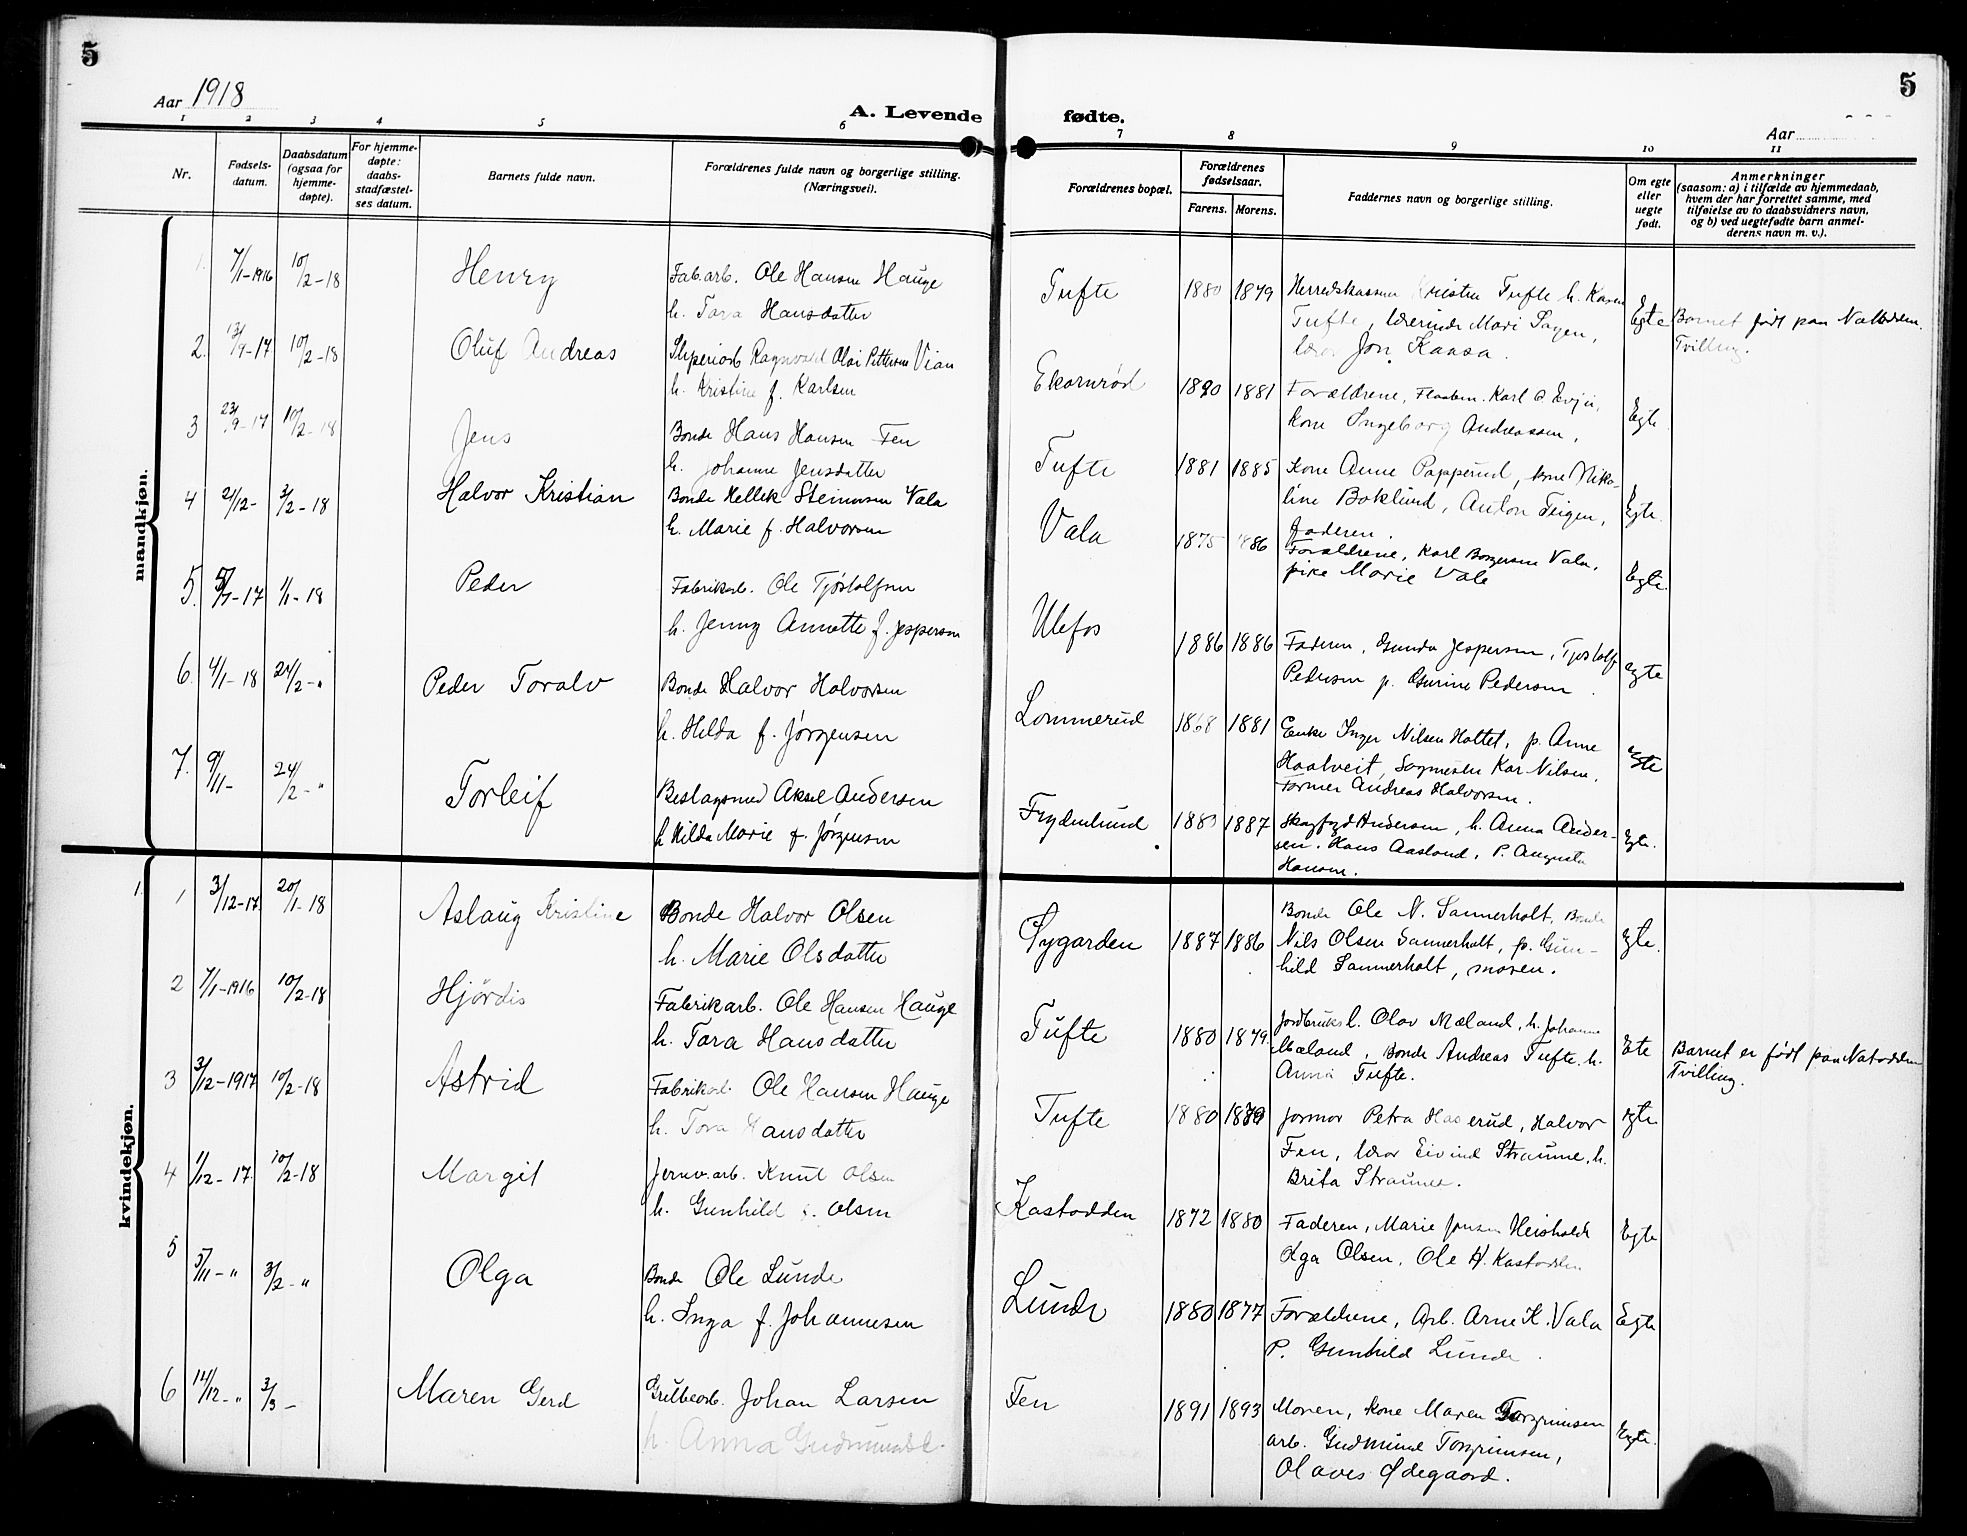 5
5
Aar 1918
A. Levende fødte.
Aar
1 2 3 4 5 6 7 8 9 10 11
Nr.
Fødsels-
datum.
Daabsdatum
(ogsaa for
hjemme-
døpte).
For hjemme-
døpte:
daabs-
stadfæstel-
ses datum.
Barnets fulde navn.
Forældrenes fulde navn og borgerlige stilling.
(Næringsvei).
Forældrenes bopæl.
Forældrenes
fødselsaar.
Farens. Morens.
Faddernes navn og borgerlige stilling.
Om egte
eller
uegte
født.
Anmerkninger
(saasom: a) i tilfælde av hjemmedaab,
hvem der har forrettet samme, med
tilføielse av to daabsvidners navn,
og b) ved uegtefødte barn anmel-
derens navn m. v.).
mandkjøn.
1. 7/1-1916 10/2-18 Henry Fab.arb. Ole Hansen Hauge
h. Tara Hansdatter
Tufte 1880 1879 Herredskasserer Kristen Tufte h. Karen
Tufte, lærerinde Mari Sagen,
lærer Jon Kaasa.
Egte
Barnet født paa Notodden.
Tvilling.
2. 13/9-17 10/2-18 Oluf Andreas Sliperiarb Ragnvald Olai Pettersen Vian
h. Kristine f. Karlsen
Ekornrød 1890 1881 Forældrene, Karl O. Evju,
kone Ingeborg Andreassen,
Egte
3 23/9-17 10/2-18 Jens Bonde Hans Hansen Fen
h. Johanne Jensdatter
Tufte 1881 1885 Kone Anne Papperud, kone Niko-
line Boklund, Anton Teigen,
Faderen.
Egte.
4 21/12- 3/2-18 Halvor Kristian Bonde Kellek Steinarsen Vala
h. Marie f. Halvorsen
Vala 1875 1886 Forældrene, Karl Borgersen Vala,
pike Marie Vale
Egte.
5. /1-17 1/1-18 Peder Fabrikarb. Ole Tjøstolfsen
h. Jenny Annette f. Jespersen
Ulefos 1886 1886 Faderen, Gunda Jespersen, Tjostolf
Pedersen p. Gurine Pedersen.
egte
6. 4/1-18 24/2-" Peder Toralv Bonde Halvor Halvorsen
h. Hilda f. Jørgensen
Lommerud 1868 1881 Enke Inger Nilsen Hottet, p. Anne
Haatveit, Sagmester Kar Nilsen,
Former Andreas Halvorsen.
egte
7. 9/11- 24/2-" Torleif Beslagsmed Aksel Andersen
h Hilda Marie f. Jørgensen
Frydenlund 1883 1887 Andersen, h. Anna Ander-
sen. Hans Aasland, P. Augusta
Hansen.
Egte.
kvindekjøn.
1.
1 3/12-17. 20/1-18 Aslaug Kristine Bonde Halvor Olsen
h. Marie Olsdatter
Øygarden 1887 1886 Bonde Ole N. Sannerholt, Bonde
Nils Olsen Sannerholt, p. Gun-
hild Sannerholt, moren.
egte.
2 7/1-1916 10/2-18 Hjørdis Fabrikarb. Ole Hansen Hauge
h. Tara Hansdatter
Tufte 1880 1879. Jordbruksl. Olav Mæland, h. Johanne
Mæland, Bonde Andreas Tufte. h.
Anna Tufte.
Ete
Barnet er født paa Notodden
Tvilling.
3 3/12-1917 10/2-18 Astrid Fabrikarb Ole Hansen Hauge
h. Tora Hansdatter
Tufte 1880 1879 Jormor Petra Haserud, Halvor
Fen, lærer Eivind Straume, h.
Brita Straume.
egte
4 1/12-17. 10/2-18 Margit Jernv.arb. Knut Olsen
h. Gunhild f. Olsen
Kastodden 1872 1880 Faderen, Marie Jensen Heisholdt
Olga Olsen, Ole H. Kastodden
Egte
5 5/11-" 3/2-" Olga Bonde Ole Lunde
h. Inga f. Johannesen
Lunde 1880 1877 Forældrene, Arb. Arne K. Vala
P. Gunhild Lunde.
Egte
6 14/12-" 3/3- Maren Gerd Grubearb. Johan Larsen
h. Anna Gudmundsd.
Fen 1891 1893 Moren, kone Maren Torgrimsen
arb. Gudmund Torgrimsen,
Olaves Ødegaard.
Egte.